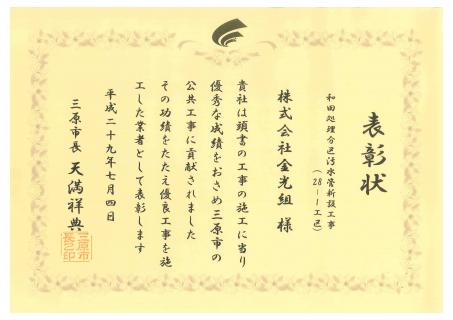 表彰状
和田処理分区汚水管新設工事
(28-1工区)
株式会社金光組 様
貴社は頭書の工事の施工に当り
優秀な成績をおさめ三原市の
公共工事に貢献されました
その功績をたたえ優良工事を施
工した業者として表彰します
平成二十九年七月四日
三原市長 天満祥典
三原市
長之印